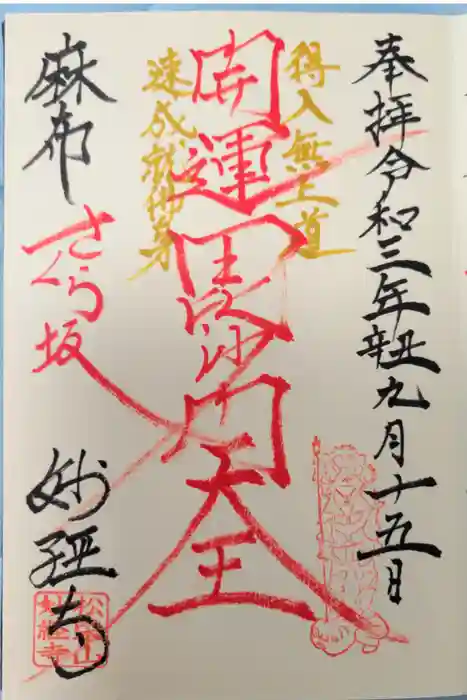 奉拝令和三年辛丑九月十五日
得入無上道
開運毘沙門天王
速成就佛身
麻布
さくら坂
妙経寺
松流山
妙経寺